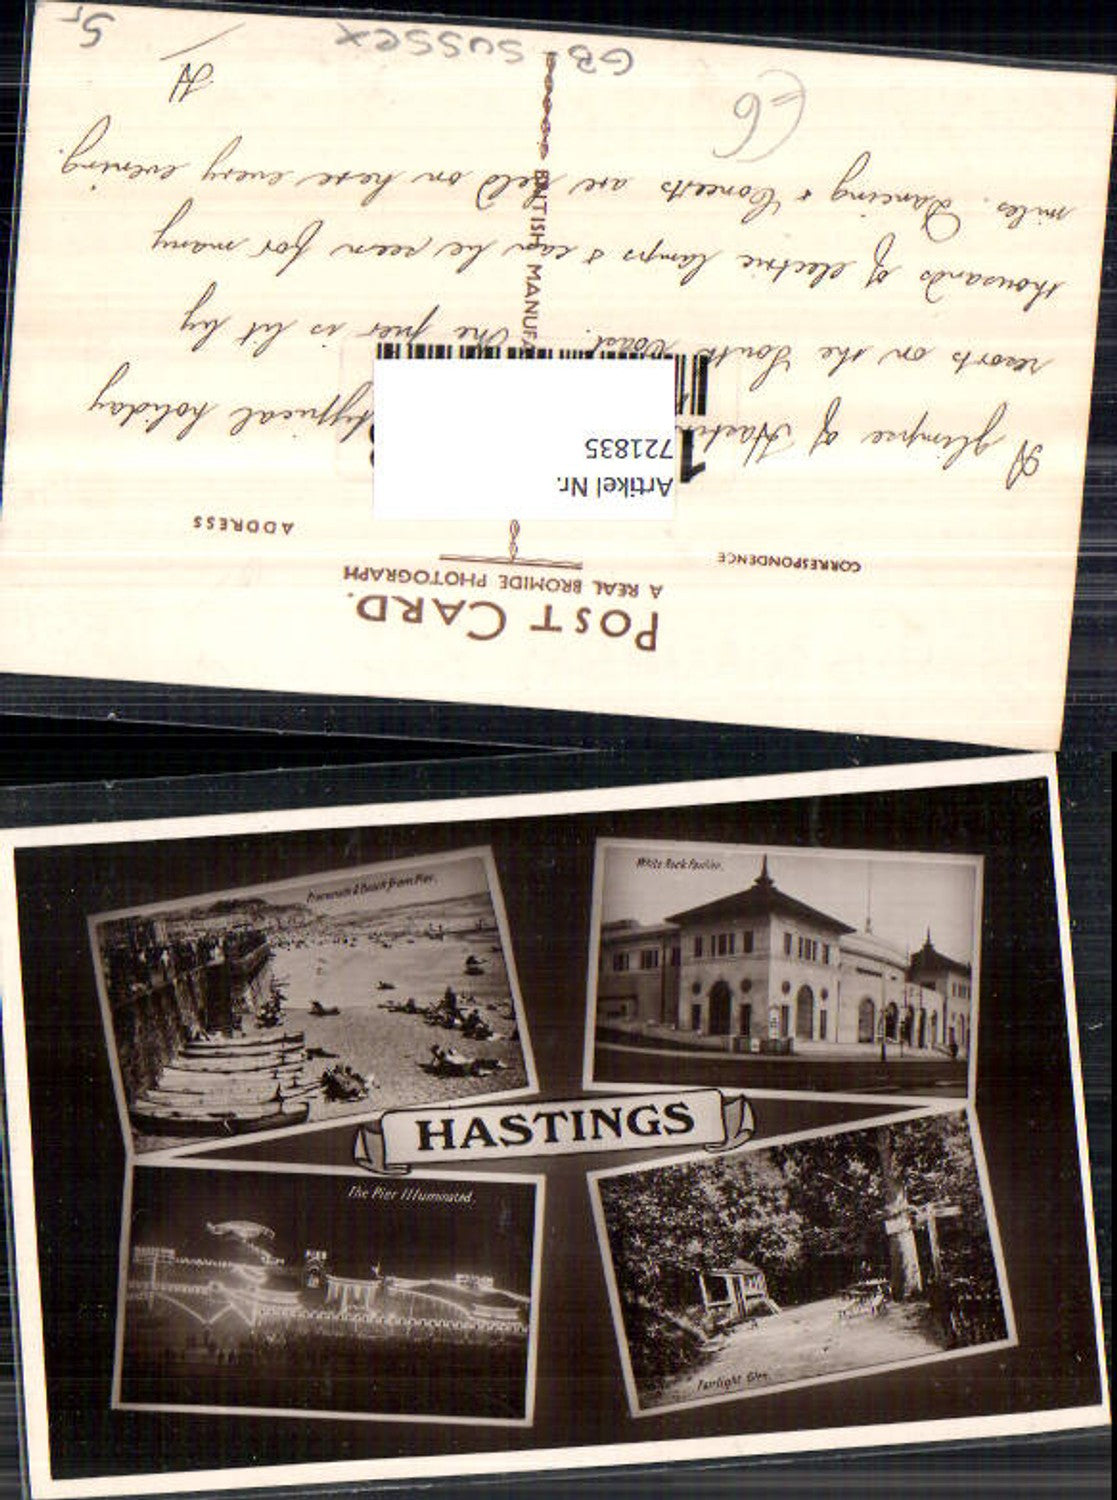 POST CARD.
A REAL BROMIDE PHOTOGRAPH
CORRESPONDENCE
ADDRESS
Artikel Nr.
721835
BRITISH MANUFA
A glimpse of Hastin typical holiday
resorts on the South Coast. The pier is lit by
thousands of electric lamps & can be seen for many
miles. Dancing & Concerts are held on here every evening.
GB SUSSEX
Promenade & Beach from Pier.
White Rock Pavilion.
HASTINGS
The Pier Illuminated.
PIER
Fairlight Glen.